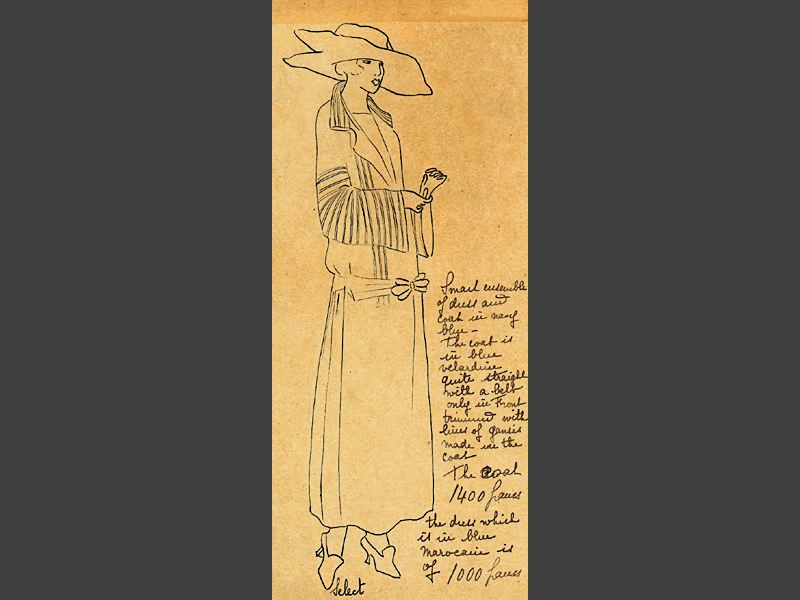 Smart ensemble
of dress and
coat in navy
blue –
The coat is
in blue
velardine
quite straight
with a belt
only in Front
trimmed with
lines of gansis
made in the
coat
The coat
1400 francs
the dress which
is in blue
marocain is
of 1000 francs
Select